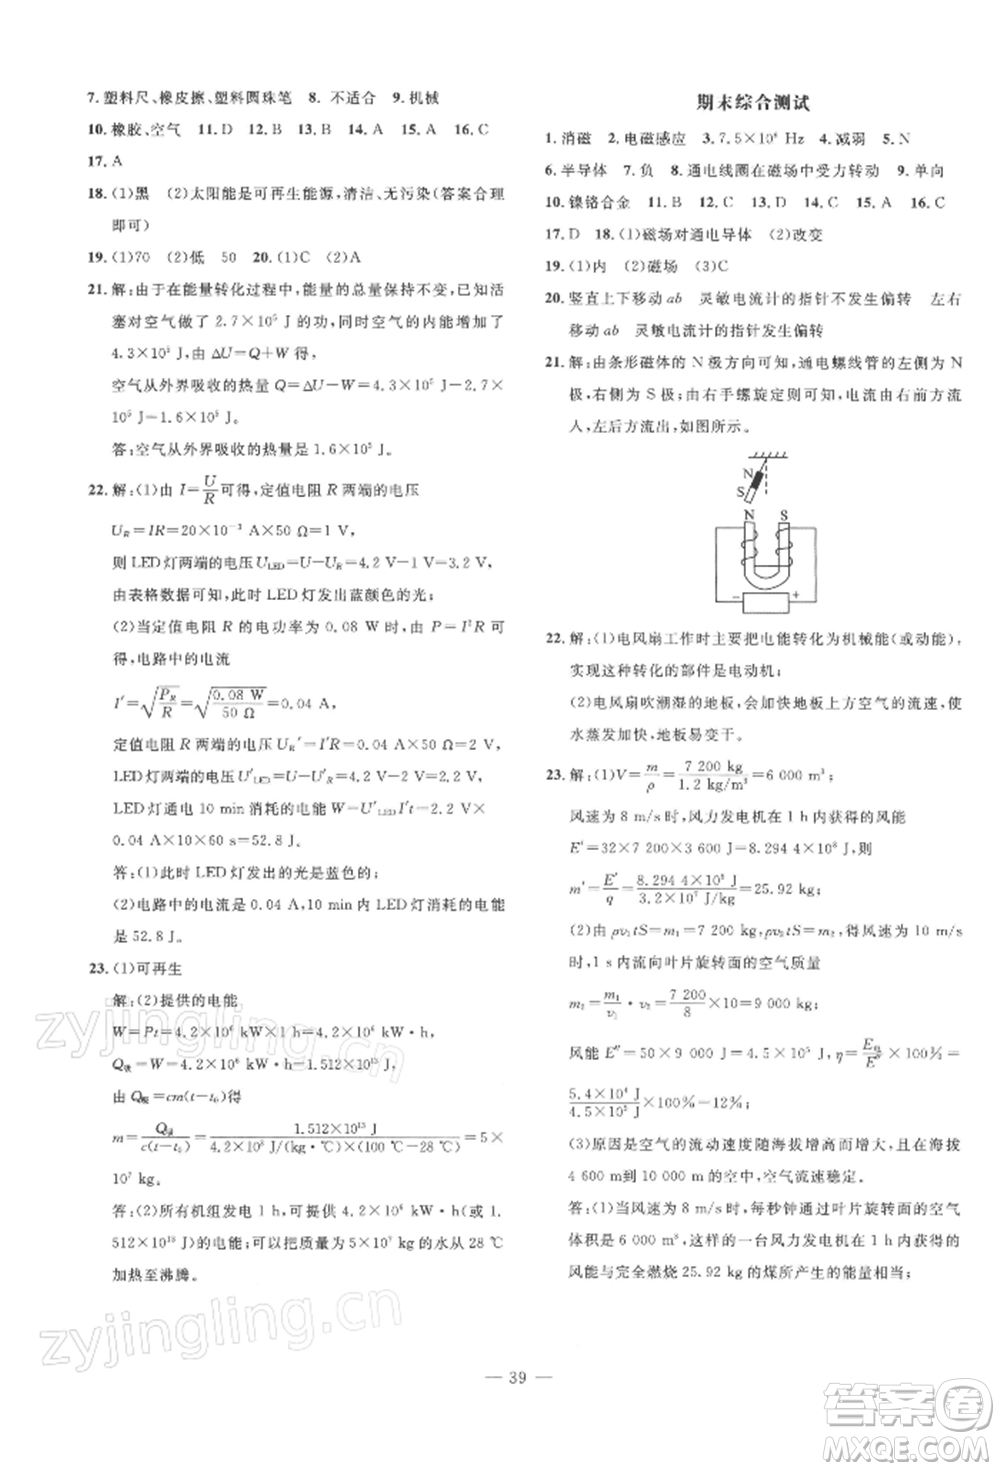 7. 塑料尺、橡皮擦、塑料圆珠笔　8. 不适合　9. 机械
10. 橡胶、空气　11. D　12. D　13. A　14. A　15. A　16. C
17. A
18. (1)黑　(2)太阳能是可再生能源,清洁、无污染(答案合理
即可)
19. (1)70　(2)低　50　20. (1)C　(2)A
21. 解:由于在能量转化过程中,能量的总量保持不变,已知活
塞对空气做了 2.7×10⁵ J 的功,同时空气的内能增加了
4.3×10⁵ J,由 ΔU=Q+W 得,
空气从外界吸收的热量 Q=ΔU－W=4.3×10⁵ J－2.7×
10⁵ J=1.6×10⁵ J。
答:空气从外界吸收的热量为 1.6×10⁵ J。
22. 解:(1)由 I=U/R 可得,定值电阻 R 两端的电压
U_R=IR=20×10⁻³ A×50 Ω=1 V,
则 LED 灯两端的电压 U_LED=U－U_R=4.2 V－1 V=3.2 V,
由表格数据可知,LED 灯发出蓝颜色的光;
(2)当定值电阻 R 的电功率为 0.08 W 时,由 P=I²R 可
得,电路中的电流
I′=√(P_R/R)=√(0.08 W/50 Ω)=0.04 A,
定值电阻 R 两端的电压 U_R′=I′R=0.04 A×50 Ω=2 V,
LED 灯两端的电压 U′_LED=U－U_R′=4.2 V－2 V=2.2 V,
LED 灯通电 10 min 消耗的电能 W=U′_LED I′t=2.2 V×
0.04 A×10×60 s=52.8 J。
答:(1)此时 LED 灯发出的光是蓝色的;
(2)电路中的电流是 0.04 A,10 min 内 LED 灯消耗的电能
是 52.8 J。
23. (1)可再生
解:(2)提供的电能
W=Pt=4.2×10⁶ kW×1 h=4.2×10⁶ kW·h,
=4.2×10⁶ kW·h=1.512×10¹³ J,
由 Q吸=cm(t－t₀)得,
1.512×10¹³ J/4.2×10³ J/(kg·℃)×(100 ℃－28 ℃)=5×
10⁷ kg。
答:(2)所有机组发电 1 h,可提供 4.2×10⁶ kW·h(或 1.
512×10¹³ J)的电能;可以把质量为 5×10⁷ kg 的水从 28 ℃
加热至沸腾。
期末综合测试
1. 消磁　2. 电磁感应　3. 7.5×10⁶ Hz　4. 减弱　5. N
6. 半导体　7. 负　8. 通电线圈在磁场中受力转动　9. 单向
10. 镍铬合金　11. B　12. C　13. D　14. D　15. A　16. C
17. D　18. (1)磁场对通电导体　(2)改变
19. (1)内　(2)磁场　(3)C
20. 竖直上下移动 ab　灵敏电流计的指针不发生偏转　左右
移动 ab　灵敏电流计的指针发生偏转
21. 解:由条形磁体的 N 极方向可知,通电螺线管的左侧为 N
极,右侧为 S 极;由右手螺旋定则可知,电流由右前方流
人,左后方流出,如图所示。
N
S
N　S
－　+
22. 解:(1)电风扇工作时主要把电能转化为机械能(或动能),
实现这种转化的部件是电动机;
(2)电风扇吹潮湿的地板,会加快地板上方空气的流速,使
水蒸发加快,地板易变干。
23. 解:(1)V=m/ρ=7 200 kg/1.2 kg/m³=6 000 m³;
风速为 8 m/s 时,风力发电机在 1 h 内获得的风能
E′=32×7 200×3 600 J=8.294 4×10⁸ J,则
m′=E′/q=8.294 4×10⁸ J/3.2×10⁷ J/kg=25.92 kg;
(2)由 ρv₁tS=m₁=7 200 kg,ρv₂tS=m₂,得风速为 10 m/s
时,1 s 内流向叶片旋转面的空气质量
m₂=m₁/v₁·v₂=7 200/8×10=9 000 kg,
风能 E″=50×9 000 J=4.5×10⁵ J,η=E电/E″×100%=
5.4×10⁴ J/4.5×10⁵ J×100%=12%;
(3)原因是空气的流动速度随海拔增高而增大,且在海拔
4 600 m到 10 000 m的空中,空气流速稳定。
答:(1)当风速为 8 m/s 时,每秒钟通过叶片旋转面的空气
体积是 6 000 m³,这样的一台风力发电机在 1 h 内获得的
风能与完全燃烧 25.92 kg 的煤所产生的能量相当;
— 39 —
zyjingling.cn
zyjingling.cn
答案圈
MXQE.COM